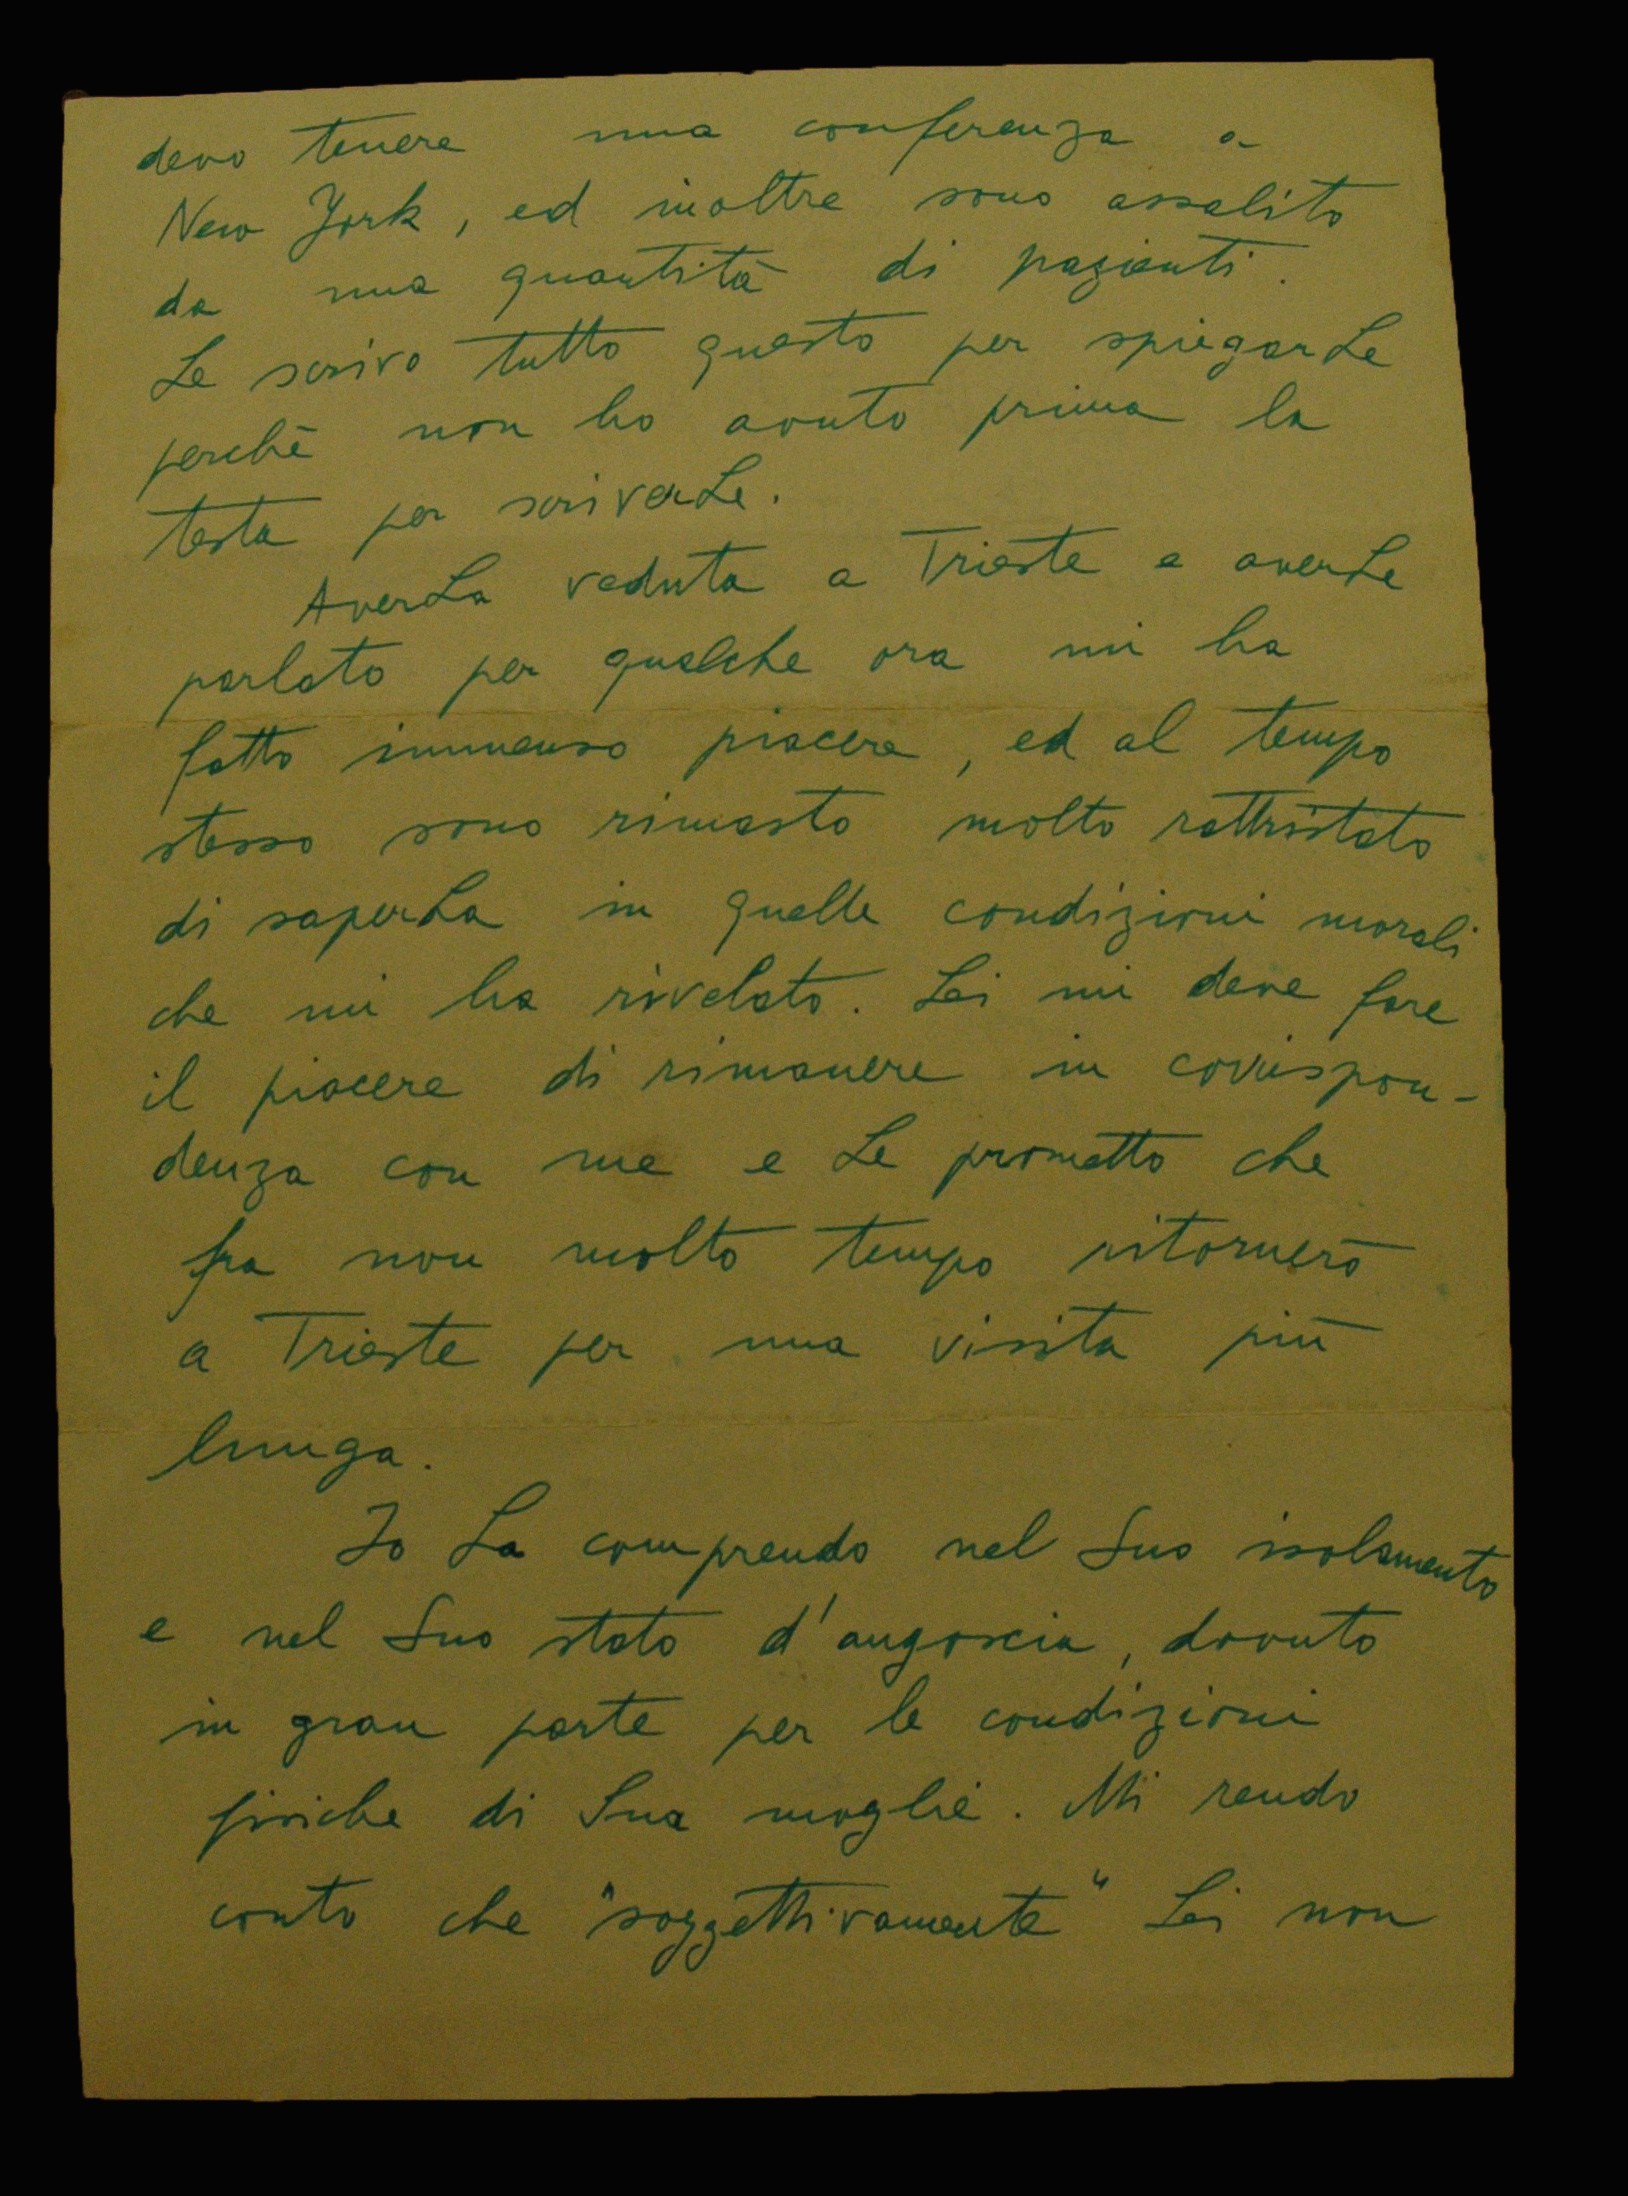 devo tenere una conferenza a
New York, ed inoltre sono assalito
da una quantità di pazienti.
Le scrivo tutto questo per spiegarLe
perchè non ho avuto prima la
testa per scriverLe.
AverLa veduta a Trieste e averLe
parlato per qualche ora mi ha
fatto immenso piacere, ed al tempo
stesso sono rimasto molto rattristato
di saperLa in quelle condizioni morali
che mi ha rivelato. Lei mi deve fare
il piacere di rimanere in corrispon-
denza con me e Le prometto che
fra non molto tempo ritornerò
a Trieste per una visita più
lunga.
Io La comprendo nel Suo isolamento
e nel Suo stato d'angoscia, dovuto
in gran parte per le condizioni
fisiche di Sua moglie. Mi rendo
conto che "soggettivamente" Lei non